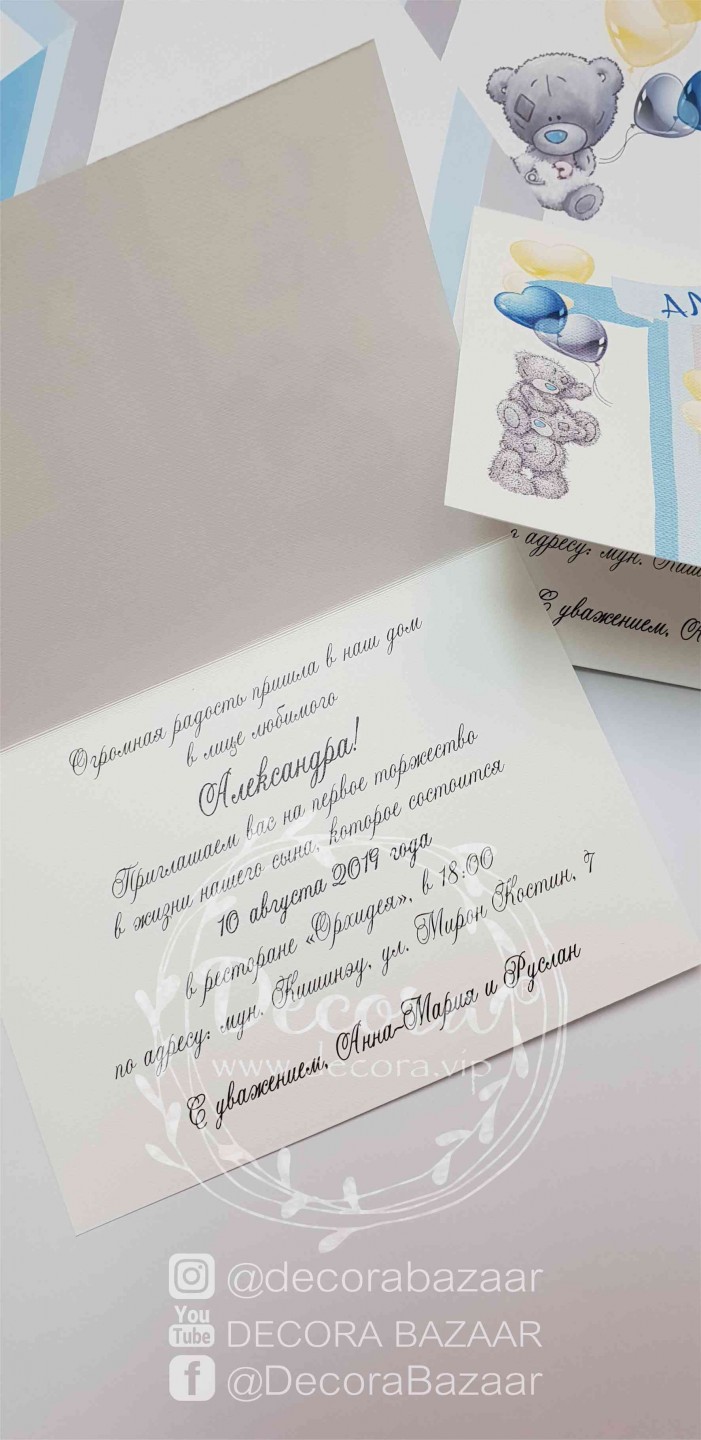 АЛ
г адресу: мун. Киши
С уважением,
Огромная радость пришла в наш дом
в лице любимого
Александра!
Приглашаем вас на первое торжество
в жизни нашего сына, которое состоится
10 августа 2019 года
в ресторане «Орхидея», в 18:00
по адресу: мун. Кишинэу, ул. Мирон Костин, 7
С уважением, Анна-Мария и Руслан
Decora
www.decora.vip
@decorabazaar
You Tube DECORA BAZAAR
f @DecoraBazaar